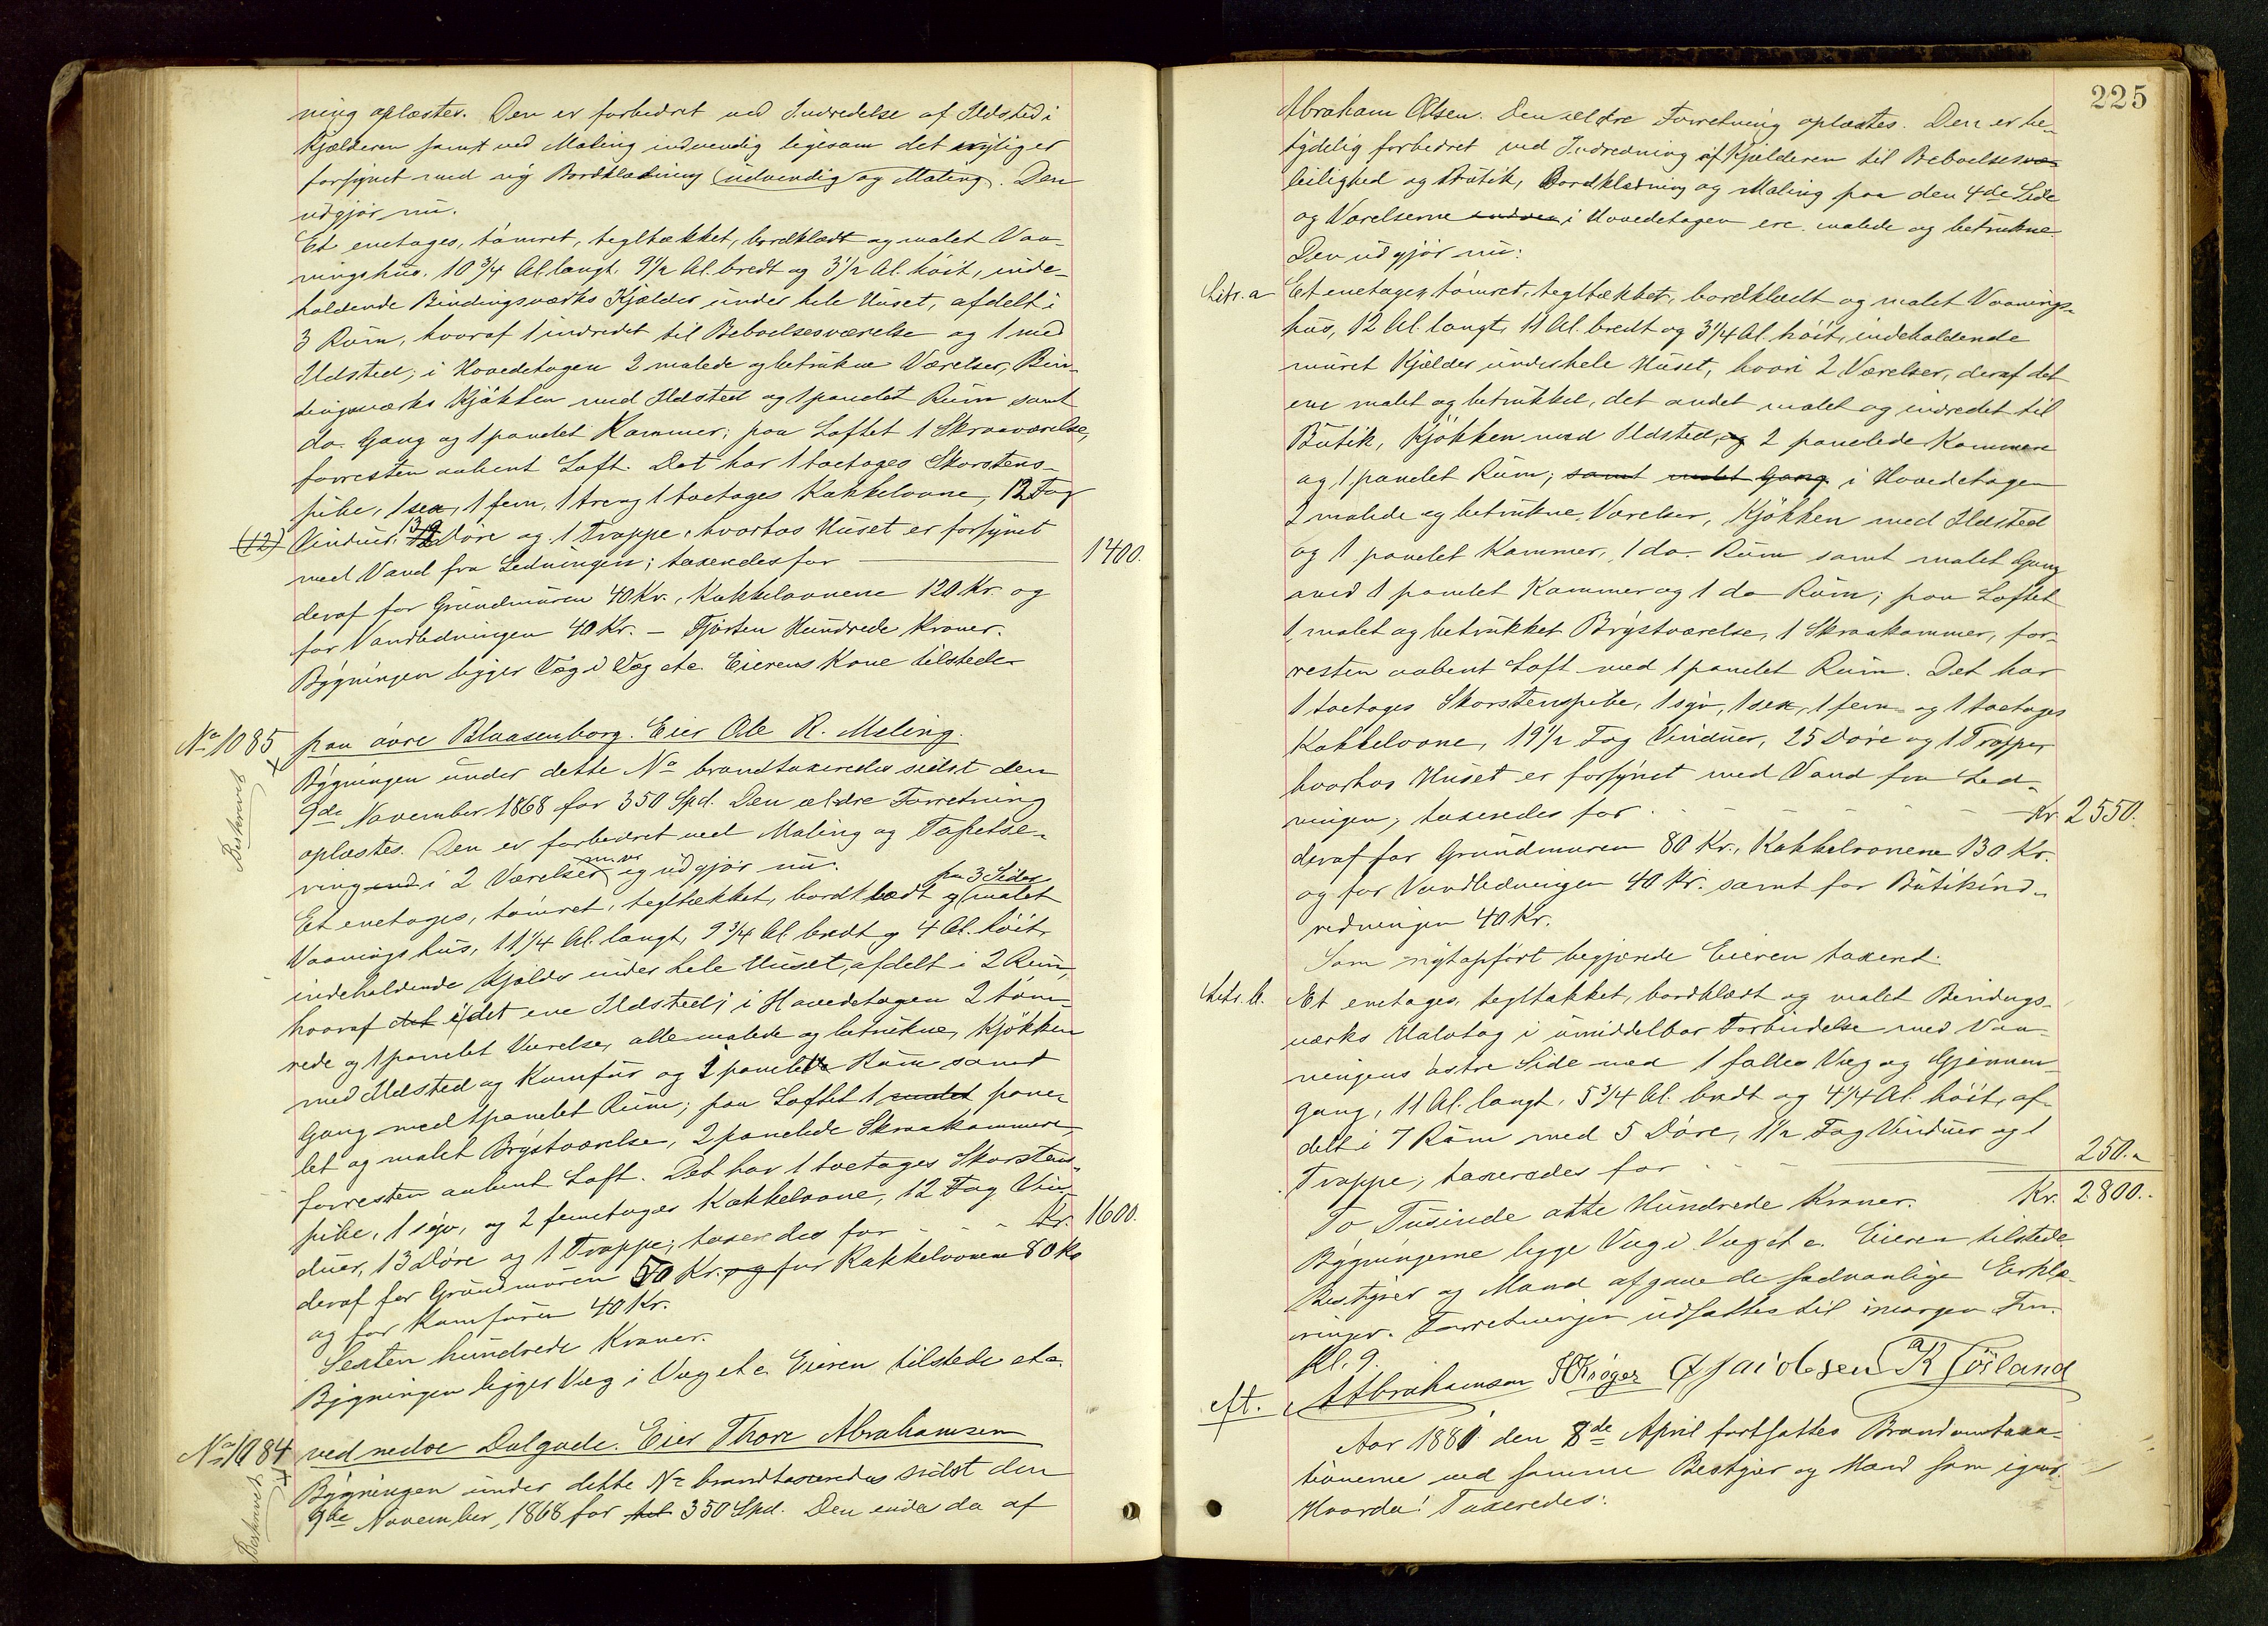 ning oplæstes. Den er forbedret ved Indredelse af Ildsted i
Kjælderen samt ved Maling indvendig ligesom det nylig er
forsynet med ny Bordklædning (udvendig og Maling). Den
udgjør nu.
Et enetages, tømret, tegltækket, bordklædt og malet Vaa-
ningshus. 10 3/4 Al. langt, 9 1/2 Al. bredt og 3 1/2 Al. høit, inde-
holdende Bindingsværks Kjælder under hele Huset, afdelt i
3 Rum, hvoraf 1 indredet til Beboelsesværelse og 1 med
Ildsted; i Hovedetagen 2 malede og betrukne Værelser, Bin-
dingsværks Kjøkken med Ildsted og 1 panelet Rum samt
do. Gang og 1 panelet Kammer; paa Loftet 1 Skraaværelse,
forresten aabent Loft. Det har 1 toetages Skorstens-
pibe, 1 sex, 1 fem, 1 tre og 1 toetages Kakkelovne, 12 Fag
(12) Vinduer, 13 Døre og 1 Trappe, hvorhos Huset er forsynet
med Vand fra Ledningen; taxeredes for 1400.
deraf for Grundmuren 40 Kr., Kakkelovnene 120 Kr. og
for Vandledningen 40 Kr. – Fjorten Hundrede Kroner.
Bygningen ligger Væg i Væg etc. Eierens Kone tilstede
No 1085 paa øvre Blaasenborg. Eier Ole R. Meling.
Beskrevet
Bygningen under dette No brandtaxeredes sidst den
9de November 1868 for 350 Spd. Den ældre Forretning
oplæstes. Den er forbedret ved Maling og Tapetse-
ring i 2 Værelser m. v. og udgjør nu.
Et enetages, tømret, tegltækket, bordklædt og (paa 3 Sider malet
Vaaningshus, 11 1/4 Al. langt, 9 3/4 Al. bredt og 4 Al. høit,
indeholdende Kjælder under hele Huset, afdelt i 2 Rum,
hvoraf det i det ene Ildsted; i Hovedetagen 2 tøm-
rede og 1 panelet Værelse, alle malede og betrukne, Kjøkken
med Ildsted og Komfur og 1 panelet Rum samt
Gang med 1 panelet Rum; paa Loftet 1 malet pane-
let og malet Brystværelse, 2 panelede Skraakammere,
forresten aabent Loft. Det har 1 toetages Skorstens-
pibe, 1 syv, og 2 femetages Kakkelovne, 12 Fag Vin-
duer, 13 Døre og 1 Trappe; taxeredes for Kr. 1600.
deraf for Grundmuren 50 Kr. og for Kakkelovnene 80 Kr
og for Komfuren 40 Kr.
Sexten hundrede Kroner.
Bygningen ligger Væg i Væg etc. Eieren tilstede etc.
No 1084 ved nedre Dalgade. Eier Thore Abrahamsen
Beskrevet
Bygningen under dette No brandtaxeredes sidst den
9de November 1868 for 350 Spd. Den eiedes da af
225
Abraham Olsen. Den ældre Forretning oplæstes. Den er be-
tydelig forbedret ved Indredning af Kjælderen til Beboelses
leilighed og Butik, Bordklædning og Maling paa den 4de Side
og Værelserne i Hovedetagen ere malede og betrukne.
Den udgjør nu:
Litr. a Et enetages, tømret, tegltækket, bordklædt og malet Vaanings-
hus, 12 Al. langt, 11 Al. bredt og 3 1/4 Al. høit, indeholdende
muret Kjælder under hele Huset, hvori 2 Værelser, deraf det
ene malet og betrukket, det andet malet og indredet til
Butik, Kjøkken med Ildsted, og 2 panelede Kammere
og 1 panelet Rum; samt malet Gang i Hovedetagen
2 malede og betrukne Værelser, Kjøkken med Ildsted
og 1 panelet Kammer, 1 do. Rum samt malet Gang
med 1 panelet Kammer og 1 do Rum; paa Loftet
1 malet og betrukket Brystværelse, 1 Skraakammer, for-
resten aabent Loft med 1 panelet Rum. Det har
1 toetages Skorstenspibe, 1 syv, 1 sex, 1 fem- og 1 toetages
Kakkelovne, 19 1/2 Fag Vinduer, 25 Døre og 1 Trappe,
hvorhos Huset er forsynet med Vand fra Led-
ningen; taxeredes for Kr 2550.
deraf for Grundmuren 80 Kr., Kakkelovnene 130 Kr.
og for Vandledningen 40 Kr. samt for Butikind-
redningen 40 Kr.
Som nyt opført begjærede Eieren taxeret:
Litr. b. Et enetages, tegltækket, bordklædt og malet Bindings-
værks Halvtag i umiddelbar Forbindelse med Vaa-
ningens østre Side med 1 fælles Væg og Gjennem-
gang, 11 Al. langt, 5 3/4 Al. bredt og 4 1/4 Al. høit, af-
delt i 7 Rum med 5 Døre, 1 1/2 Fag Vinduer og 1
Trappe; taxeredes for 250.
To Tusinde otte Hundrede Kroner. Kr. 2800.
Bygningerne ligge Væg i Væg etc. Eieren tilstede
Bestyrer og Mænd afgave de sædvanlige Erklæ-
ringer. Forretningen udsattes til imorgen Fm.
Kl. 9.
eft. A Abrahamsen Krøger Jacobsen K Tørland
Aar 1881 den 8de April fortsattes Brandomtaxa-
tionerne ved samme Bestyrer og Mænd som igaar.
Hvorda! Taxeredes: